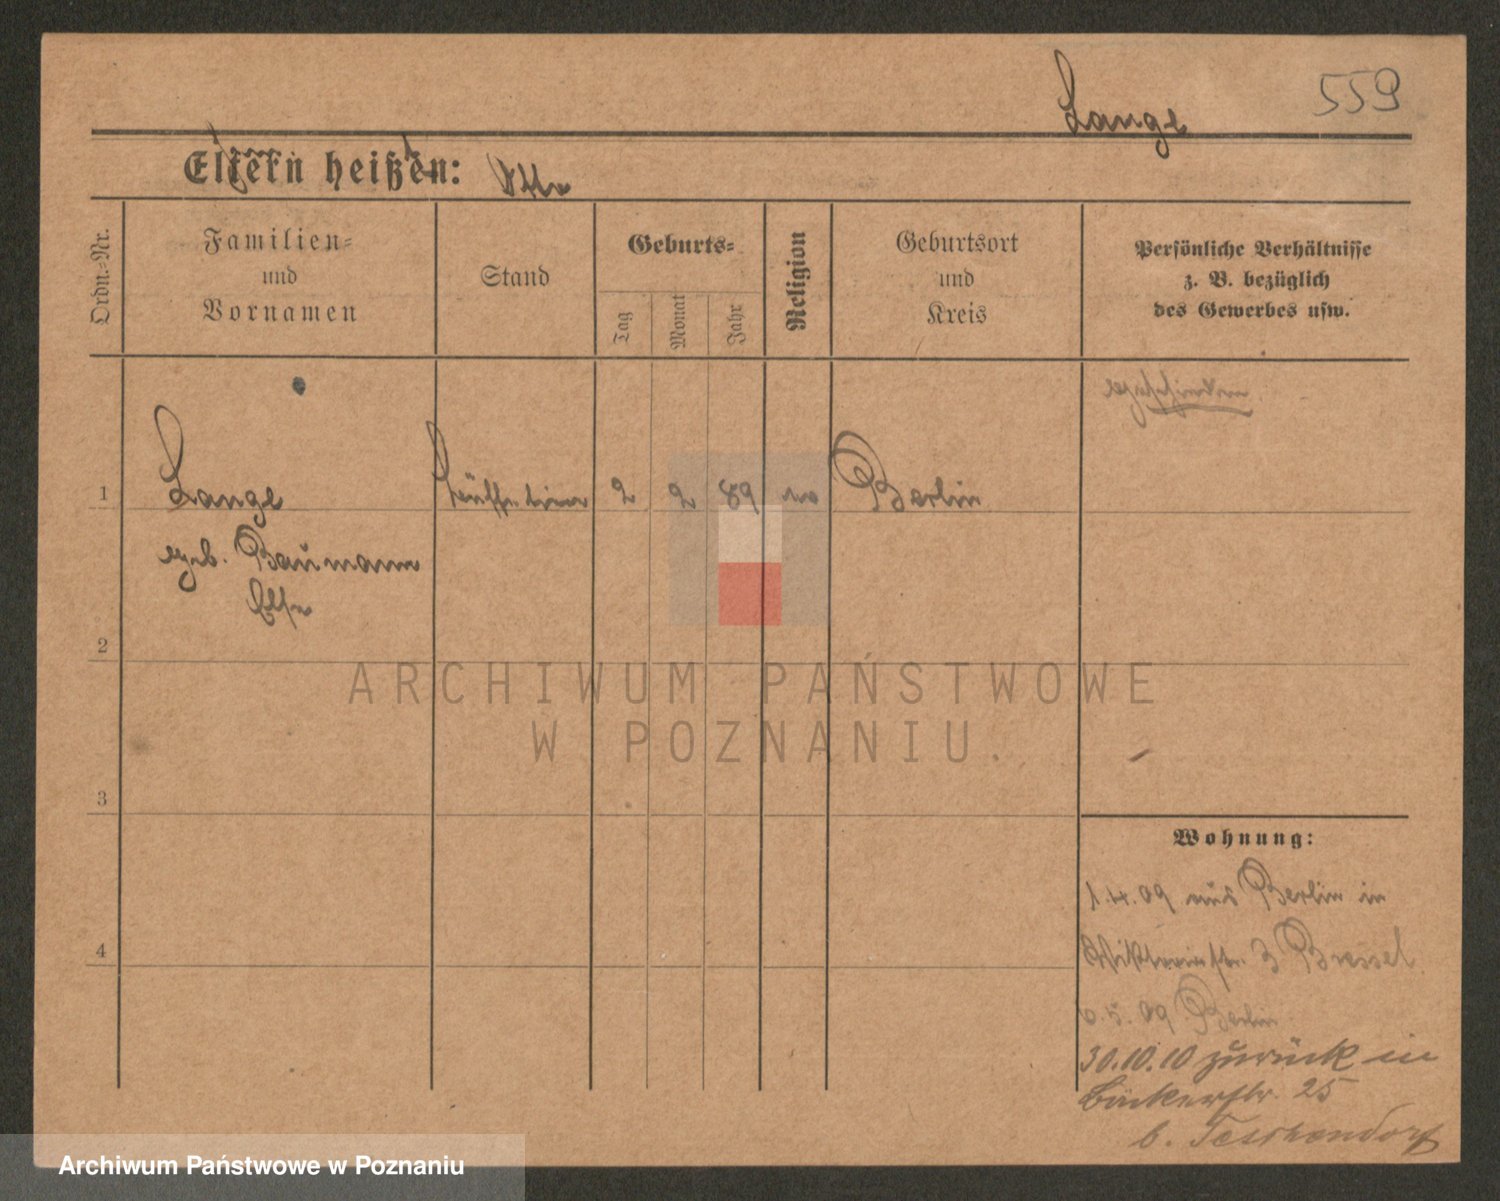 559
Lange
Eltern heißen:
Ordn.-Nr.
Familien-
und
Vornamen
Stand
Geburts-
Tag
Monat
Jahr
Religion
Geburtsort
und
Kreis
Persönliche Verhältnisse
z. B. bezüglich
des Gewerbes usw.
geschieden
1 Lange 2 2 89 Berlin
geb. Baumann
Else
2
3
4
Wohnung:
1.4.09 aus Berlin in
3 Bressel
6.5.09 Berlin
30.10.10 zurück in
Bäckerstr. 25
b. Teschendorf
ARCHIWUM PAŃSTWOWE
W POZNANIU.
Archiwum Państwowe w Poznaniu